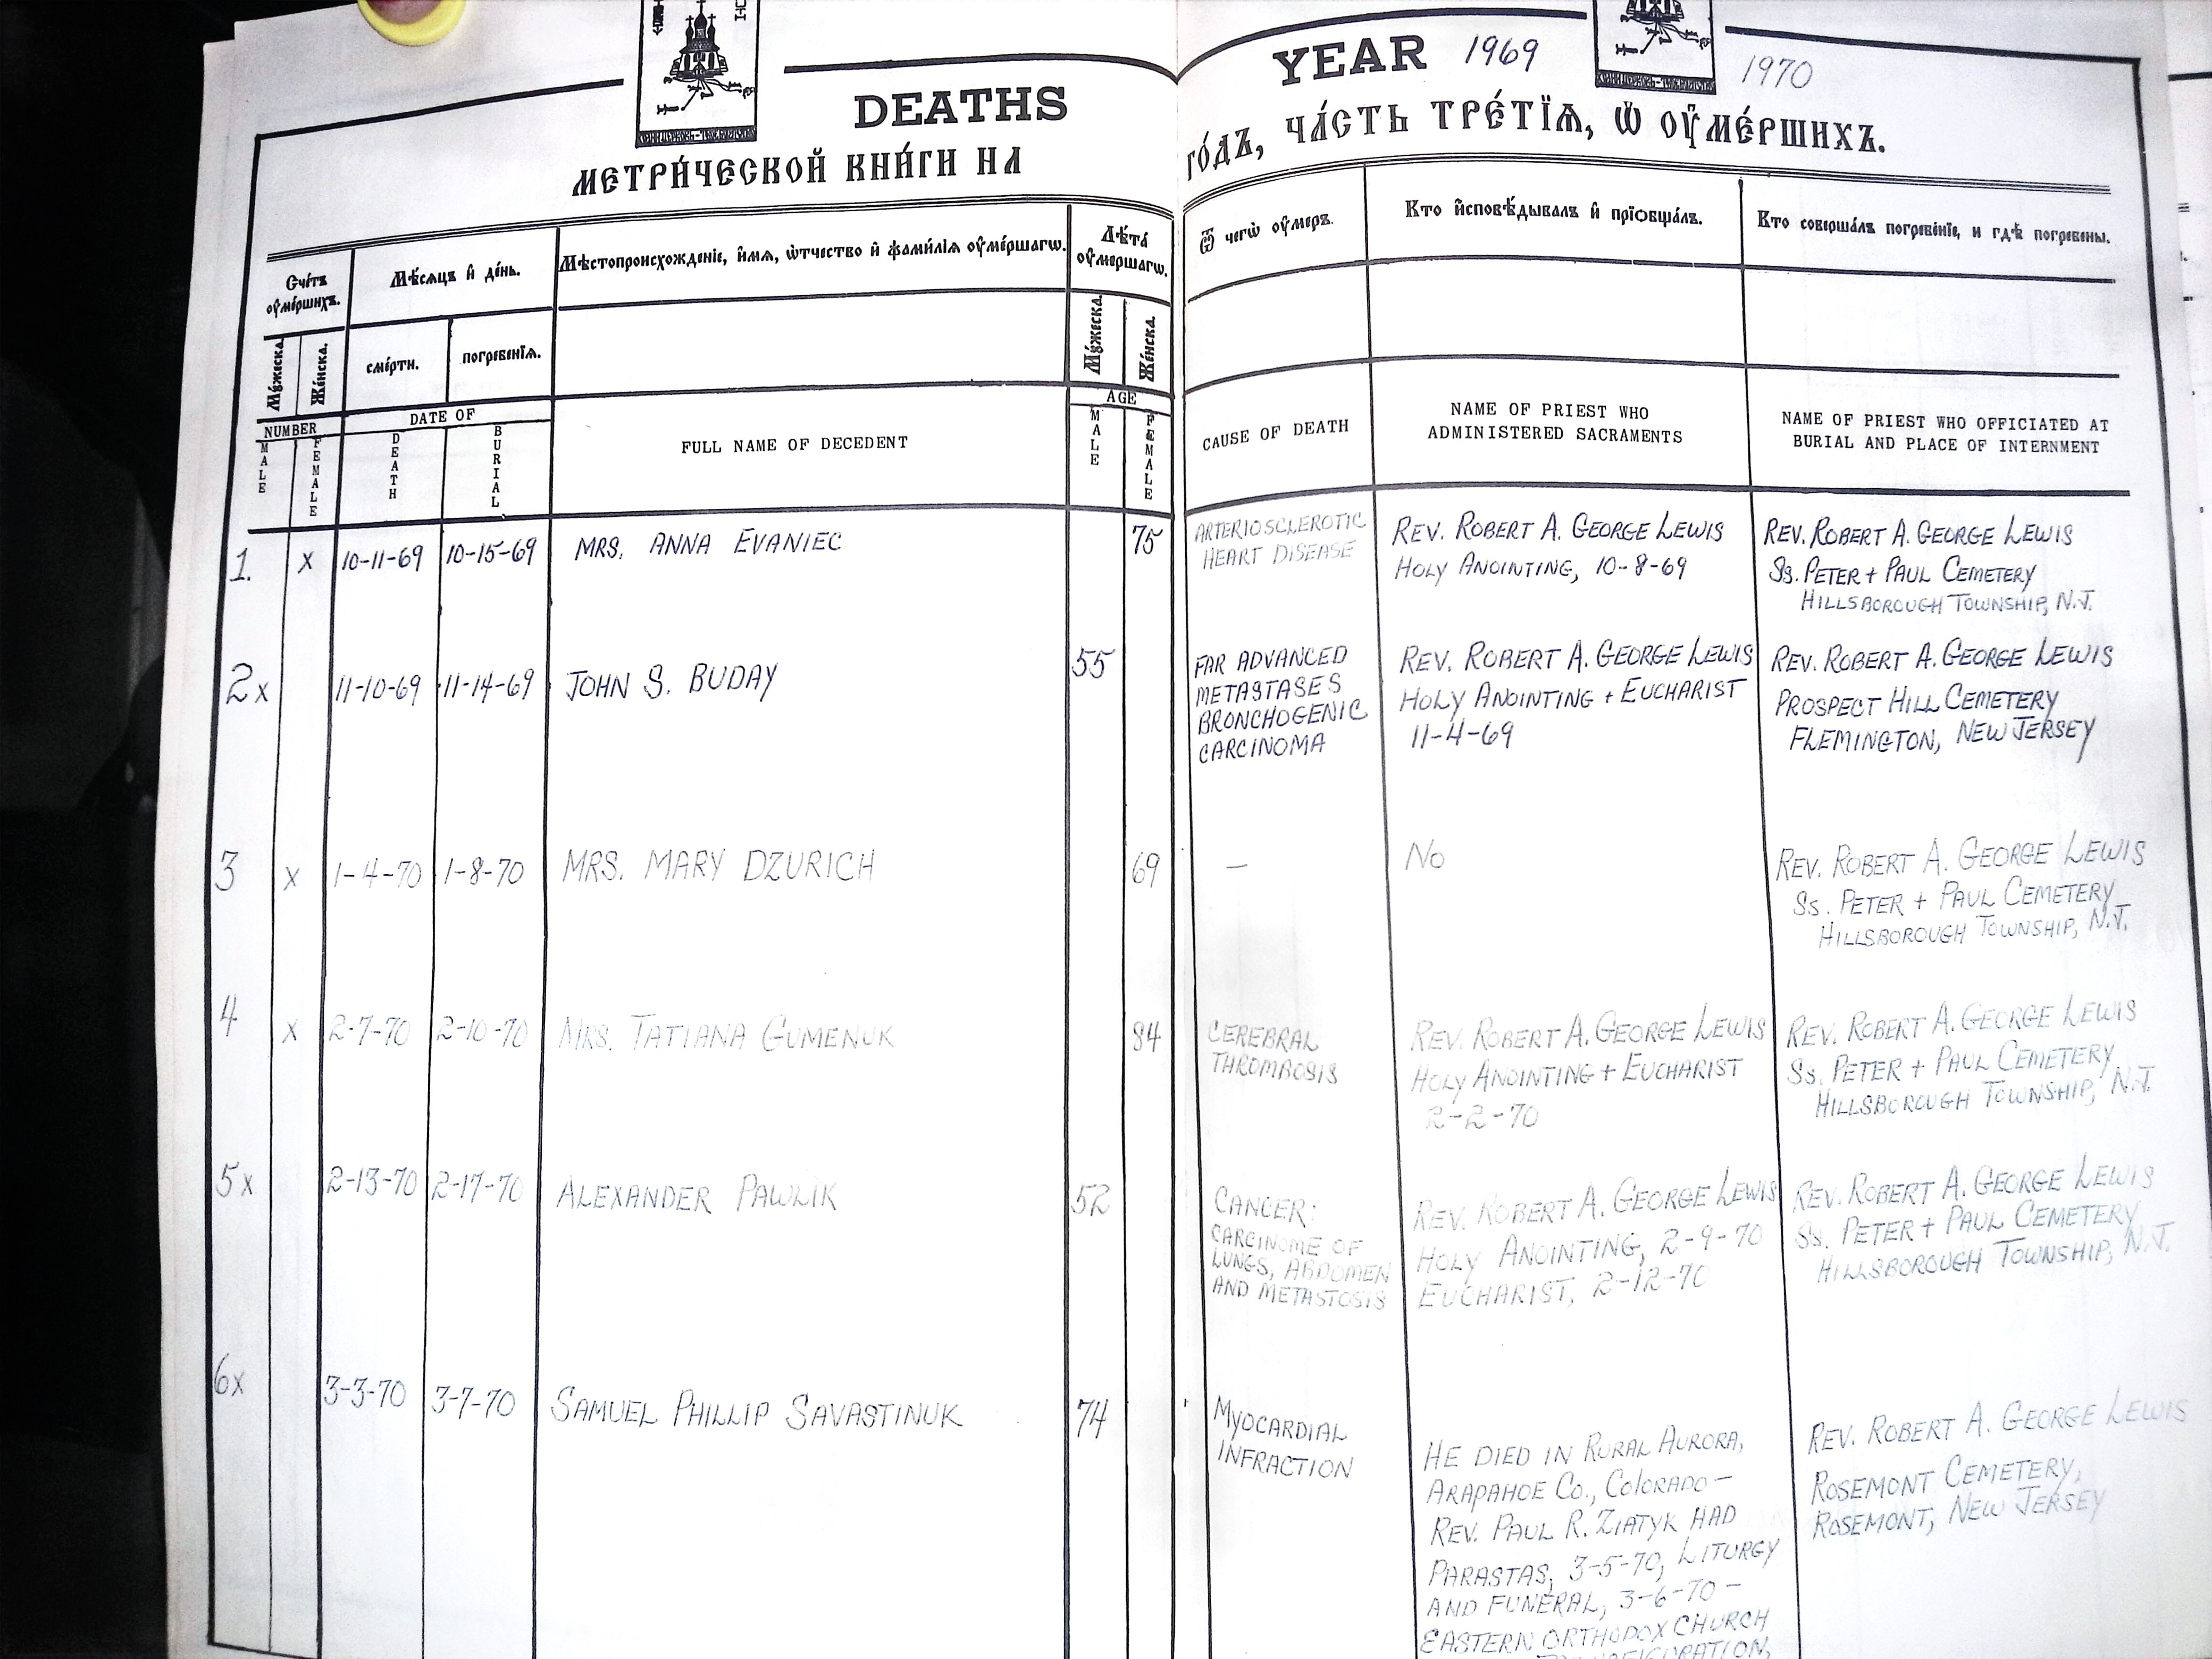 DEATHS
МЕТРИ́ЧЕСКОЙ КНИ́ГИ НА
YEAR 1969 1970
ГО́ДЪ, ЧА́СТЬ ТРЕ́ТЇѦ, Ѿ ОУ҆МЕ́РШИХЪ.
Сче́тъ оу҆ме́ршихъ.
Мѣ́сѧцъ и҆ де́нь.
Мѣстопроисхожде́нїе, и҆́мѧ, ѻ҆́тчество и҆ фами́лїѧ оу҆ме́ршагѡ.
Лѣ́та оу҆ме́ршагѡ.
Ѿ чегѡ̀ оу҆́меръ.
Кто̀ и҆сповѣ́дывалъ и҆ прїѡбща́лъ.
Кто соверша́лъ погребе́нїе, и гдѣ̀ погребены.
Мꙋ́жеска.
Же́нска.
сме́рти.
погребе́нїѧ.
Мꙋ́жеска.
Же́нска.
NUMBER
MALE
FEMALE
DATE OF
DEATH
BURIAL
FULL NAME OF DECEDENT
AGE
MALE
FEMALE
CAUSE OF DEATH
NAME OF PRIEST WHO
ADMINISTERED SACRAMENTS
NAME OF PRIEST WHO OFFICIATED AT
BURIAL AND PLACE OF INTERNMENT
1. X 10-11-69 10-15-69 MRS. ANNA EVANIEC 75
ARTERIOSCLEROTIC
HEART DISEASE
REV. ROBERT A. GEORGE LEWIS
HOLY ANOINTING, 10-8-69
REV. ROBERT A. GEORGE LEWIS
SS. PETER + PAUL CEMETERY
HILLSBOROUGH TOWNSHIP, N.J.
2 X 11-10-69 11-14-69 JOHN S. BUDAY 55
FAR ADVANCED
METASTASES
BRONCHOGENIC
CARCINOMA
REV. ROBERT A. GEORGE LEWIS
HOLY ANOINTING + EUCHARIST
11-4-69
REV. ROBERT A. GEORGE LEWIS
PROSPECT HILL CEMETERY
FLEMINGTON, NEW JERSEY
3 X 1-4-70 1-8-70 MRS. MARY DZURICH 69
—
NO
REV. ROBERT A. GEORGE LEWIS
SS. PETER + PAUL CEMETERY
HILLSBOROUGH TOWNSHIP, N.J.
4 X 2-7-70 2-10-70 MRS. TATIANA GUMENUK 84
CEREBRAL
THROMBOSIS
REV. ROBERT A. GEORGE LEWIS
HOLY ANOINTING + EUCHARIST
2-2-70
REV. ROBERT A. GEORGE LEWIS
SS. PETER + PAUL CEMETERY
HILLSBOROUGH TOWNSHIP, N.J.
5 X 2-13-70 2-17-70 ALEXANDER PAWLIK 52
CANCER:
CARCINOME OF
LUNGS, ABDOMEN
AND METASTOSIS
REV. ROBERT A. GEORGE LEWIS
HOLY ANOINTING, 2-9-70
EUCHARIST, 2-12-70
REV. ROBERT A. GEORGE LEWIS
SS. PETER + PAUL CEMETERY
HILLSBOROUGH TOWNSHIP, N.J.
6 X 3-3-70 3-7-70 SAMUEL PHILLIP SAVASTINUK 74
MYOCARDIAL
INFRACTION
HE DIED IN RURAL AURORA,
ARAPAHOE CO., COLORADO —
REV. PAUL R. ZIATYK HAD
PARASTAS, 3-5-70, LITURGY
AND FUNERAL, 3-6-70 —
EASTERN ORTHODOX CHURCH
REV. ROBERT A. GEORGE LEWIS
ROSEMONT CEMETERY,
ROSEMONT, NEW JERSEY